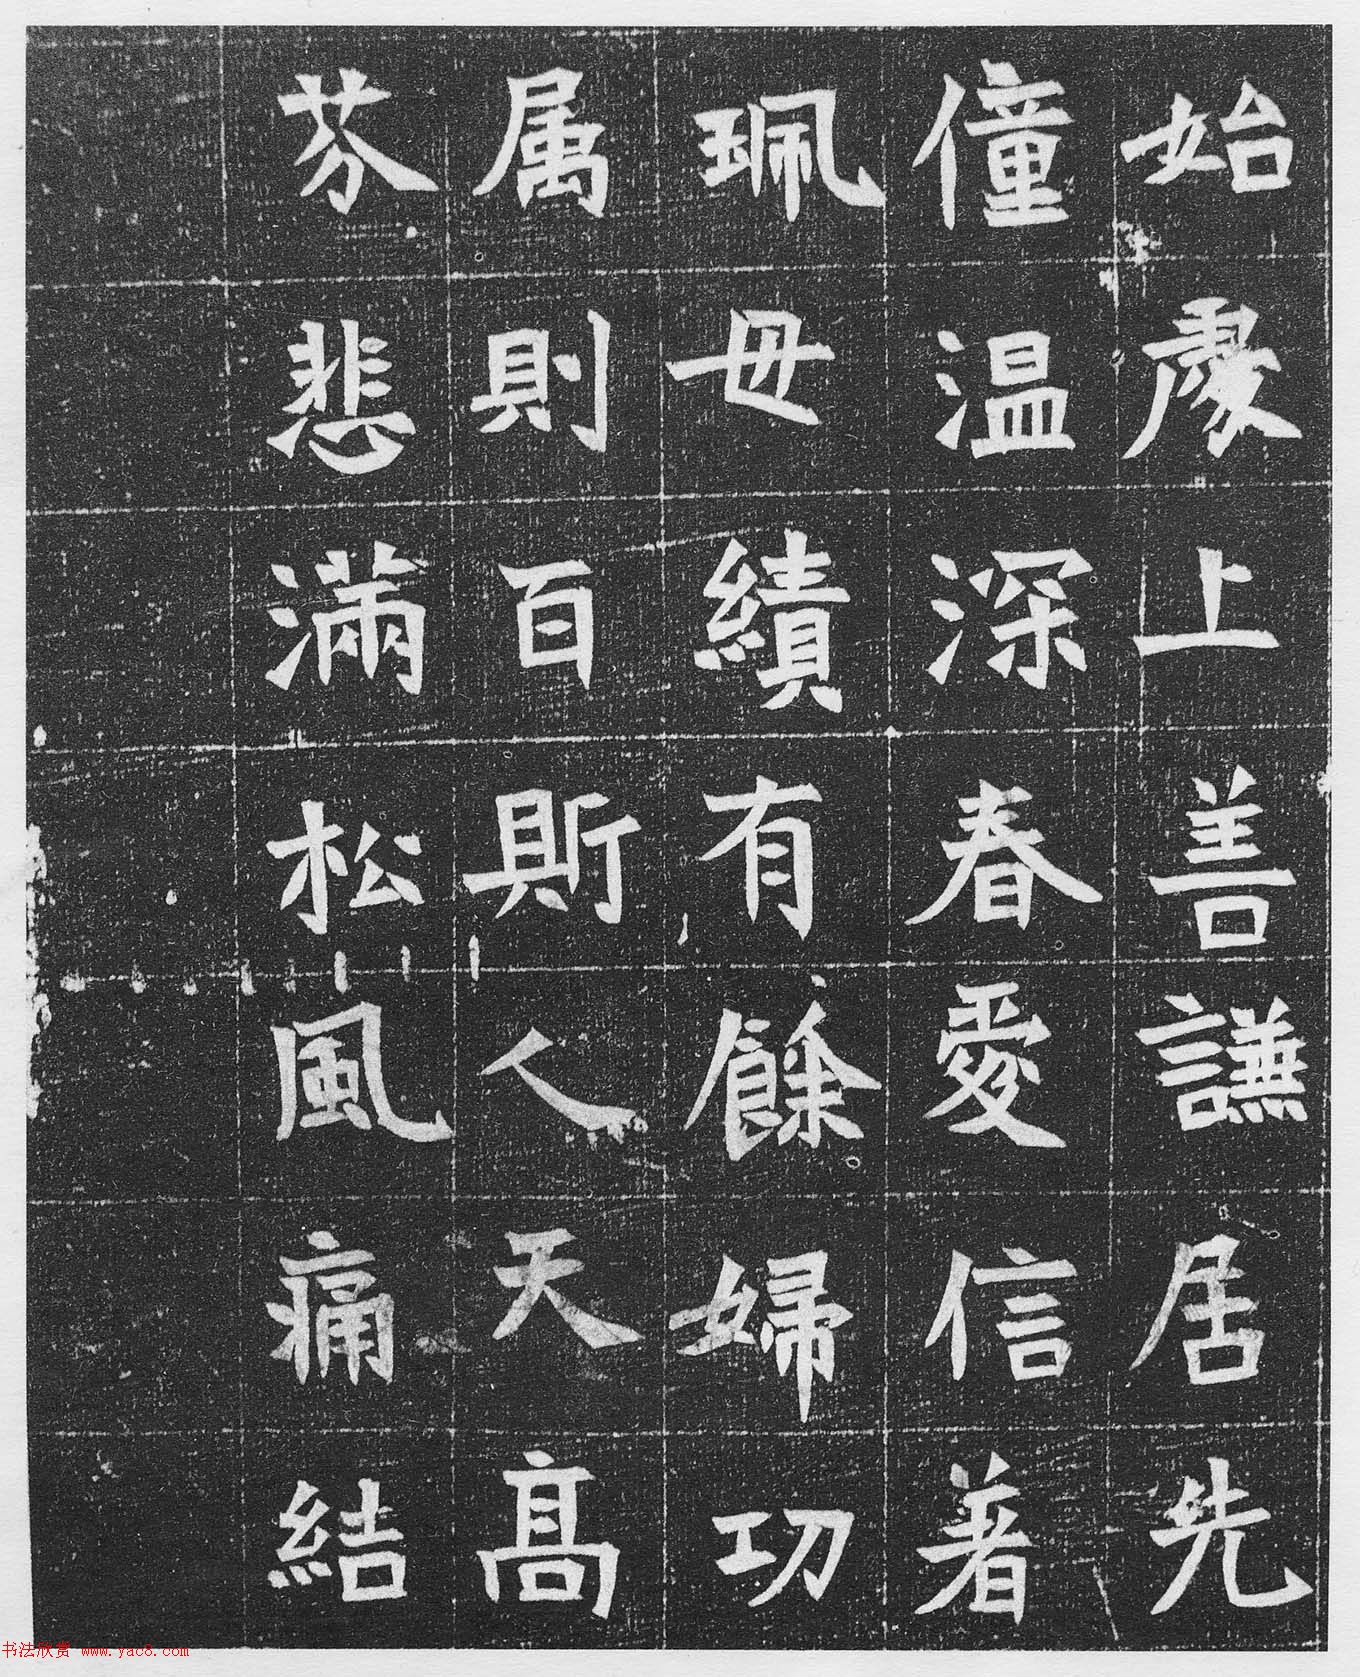 始豫上善謙居先
僮温深春愛信著
珮毋績有餘婦功
属則百斯人天高
芬悲滿松風痛結
书法欣赏 www.yac8.com